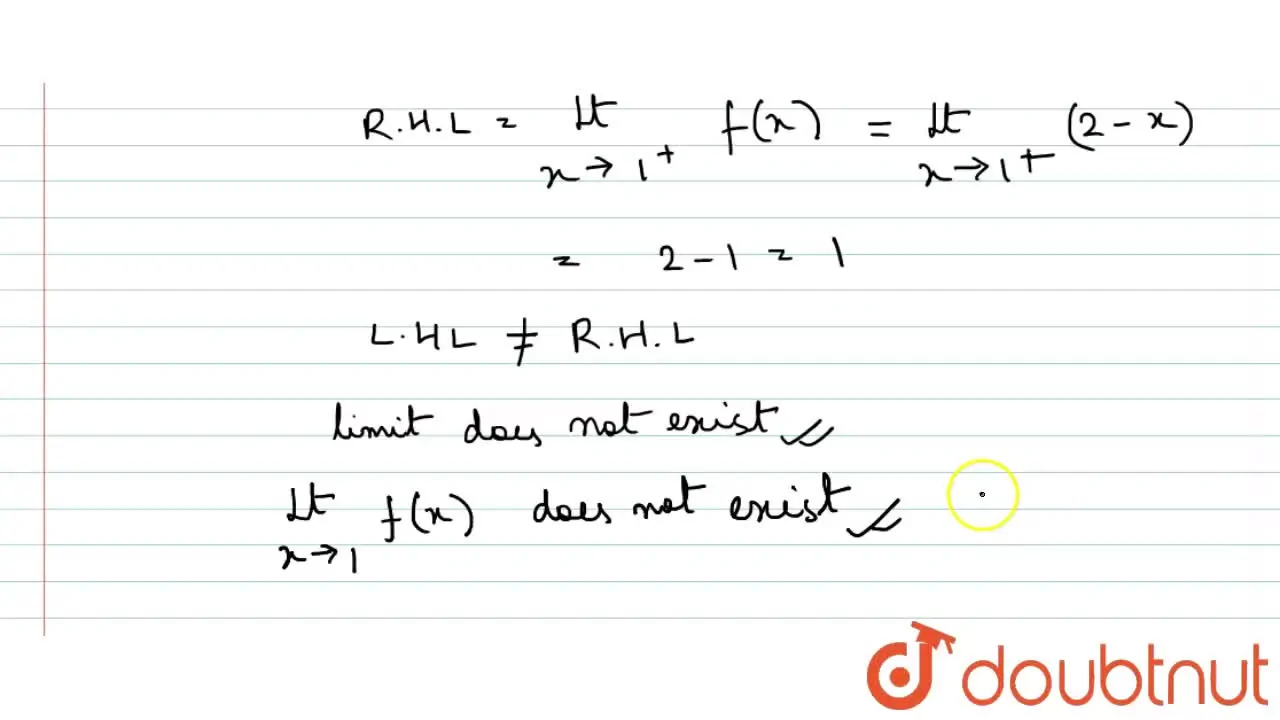 R.H.L = Lt x→1⁺ f(x) = Lt x→1+ (2-x)
= 2-1 = 1
L.HL ≠ R.H.L
limit does not exist
Lt x→1 f(x) does not exist
doubtnut